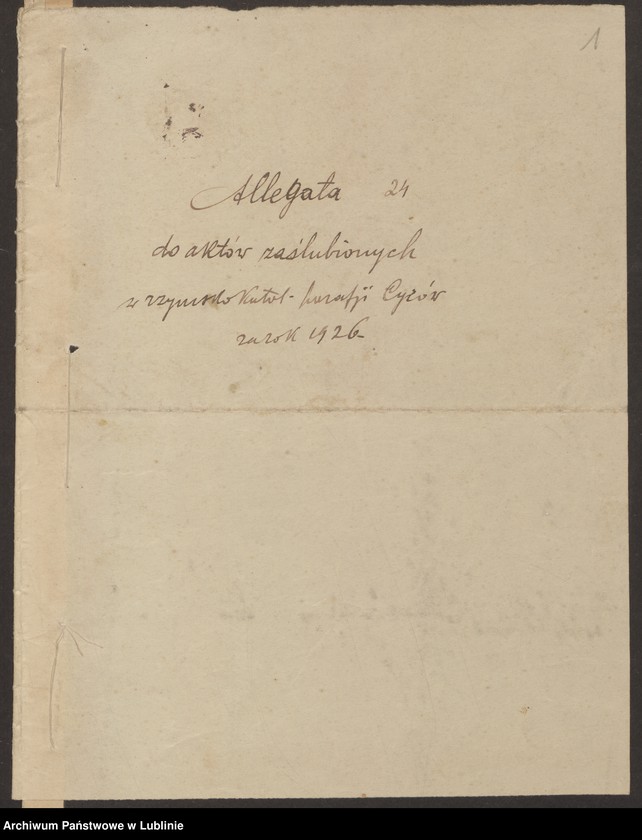 1
Allegata 24
do aktów zaślubionych
w rzymsdo katol. parafji Cyców
za rok 1926
Archiwum Państwowe w Lublinie